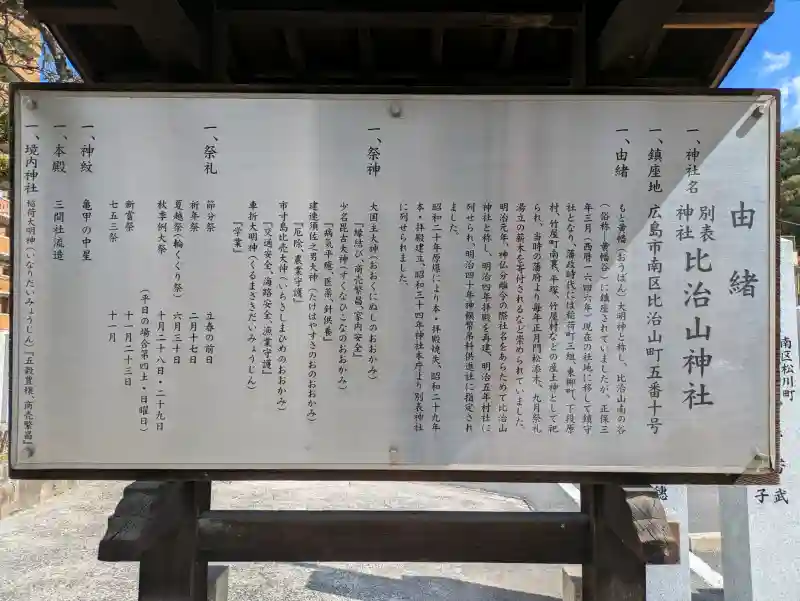 由緒
一、神社名
別表
神社
比治山神社
一、鎮座地　広島市南区比治山町五番十号
一、由緒　もと黄幡（おうばん）大明神と称し、比治山南の谷
（俗称・黄幡谷）に鎮座されていましたが、正保三
年三月（西暦一六四六年）現在の社地に移して鎮守
社となり、藩政時代には稲荷町三組、東柳町、下段原
村、竹屋町南裏、平塚、竹屋村などの産土神として祀
られ、当時の藩府より毎年正月門松添木、九月祭礼
湯立の薪木を寄付されるなど崇められていました。
明治元年、神仏分離令の際社名をあらためて比治山
神社と称し、明治四年拝殿を再建、明治五年村社に
列せられ、明治四十年神饌幣帛料供進社に指定され
ました。
昭和二十年原爆により本・拝殿焼失、昭和二十九年
本・拝殿建立、昭和三十四年神社本庁より別表神社
に列せられました。
一、祭神　大国主大神（おおくにぬしのおおかみ）
『縁結び、商売繁昌、家内安全』
少名毘古大神（すくなひこなのおおかみ）
『病気平癒、医薬、針供養』
建速須佐之男大神（たけはやすさのおのおおかみ）
『厄除、農業守護』
市寸島比売大神（いちきしまひめのおおかみ）
『交通安全、海路安全、漁業守護』
車折大明神（くるまざきだいみょうじん）
『学業』
一、祭礼　節分祭　立春の前日
祈年祭　二月十七日
夏越祭（輪くぐり祭）　六月三十日
秋季例大祭　十月二十八日・二十九日
（平日の場合第四土・日曜日）
新嘗祭　十一月二十三日
七五三祭　十一月
一、神紋　亀甲の中星
一、本殿　三間社流造
一、境内神社　稲荷大明神（いなりだいみょうじん）『五穀豊穣、商売繁昌』
南区松川町
武
子
穂